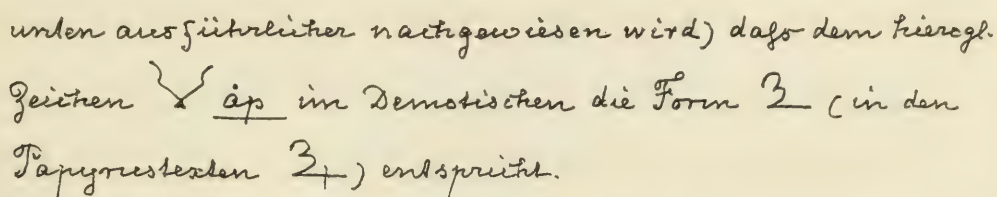 unten ausführlicher nachgewiesen wird) daſs dem hierogl.
Zeichen åp im Demotischen die Form (in den
Papyrustexten ) entspricht.